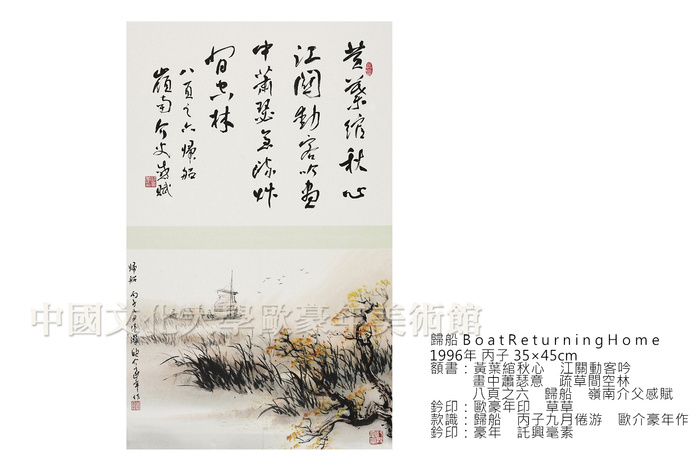 黃葉綰秋心
江關動客吟畫
中蕭瑟意疏草
間空林
八頁之六歸船
嶺南介父感賦
歸船 丙子九月倦游 歐介豪年作
中國文化大學歐豪年美術館
歸船 Boat Returning Home
1996年 丙子 35×45cm
額書：黃葉綰秋心 江關動客吟
畫中蕭瑟意 疏草間空林
八頁之六 歸船 嶺南介父感賦
鈐印：歐豪年印 草草
款識：歸船 丙子九月倦游 歐介豪年作
鈐印：豪年 託興毫素